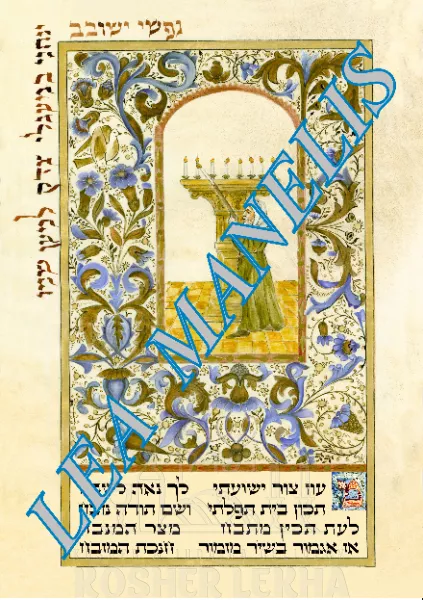 נפשי ישובב
ינחני במעגלי צדק למען שמו
LEA MANELIS
עוז צור ישועתי לך נאה
תכון בית תפלתי ושם תודה
לעת תכין מטבח מצר המנבח
אז אגמור בשיר מזמור חנכת המזבח
KOSHER LEKHA